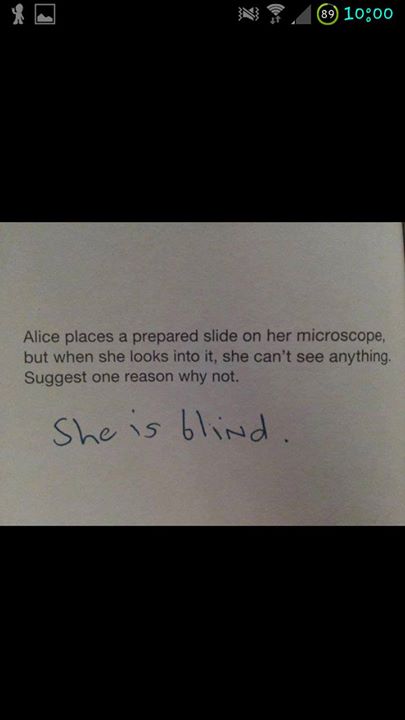 89 10:00
Alice places a prepared slide on her microscope,
but when she looks into it, she can't see anything.
Suggest one reason why not.
She is blind.